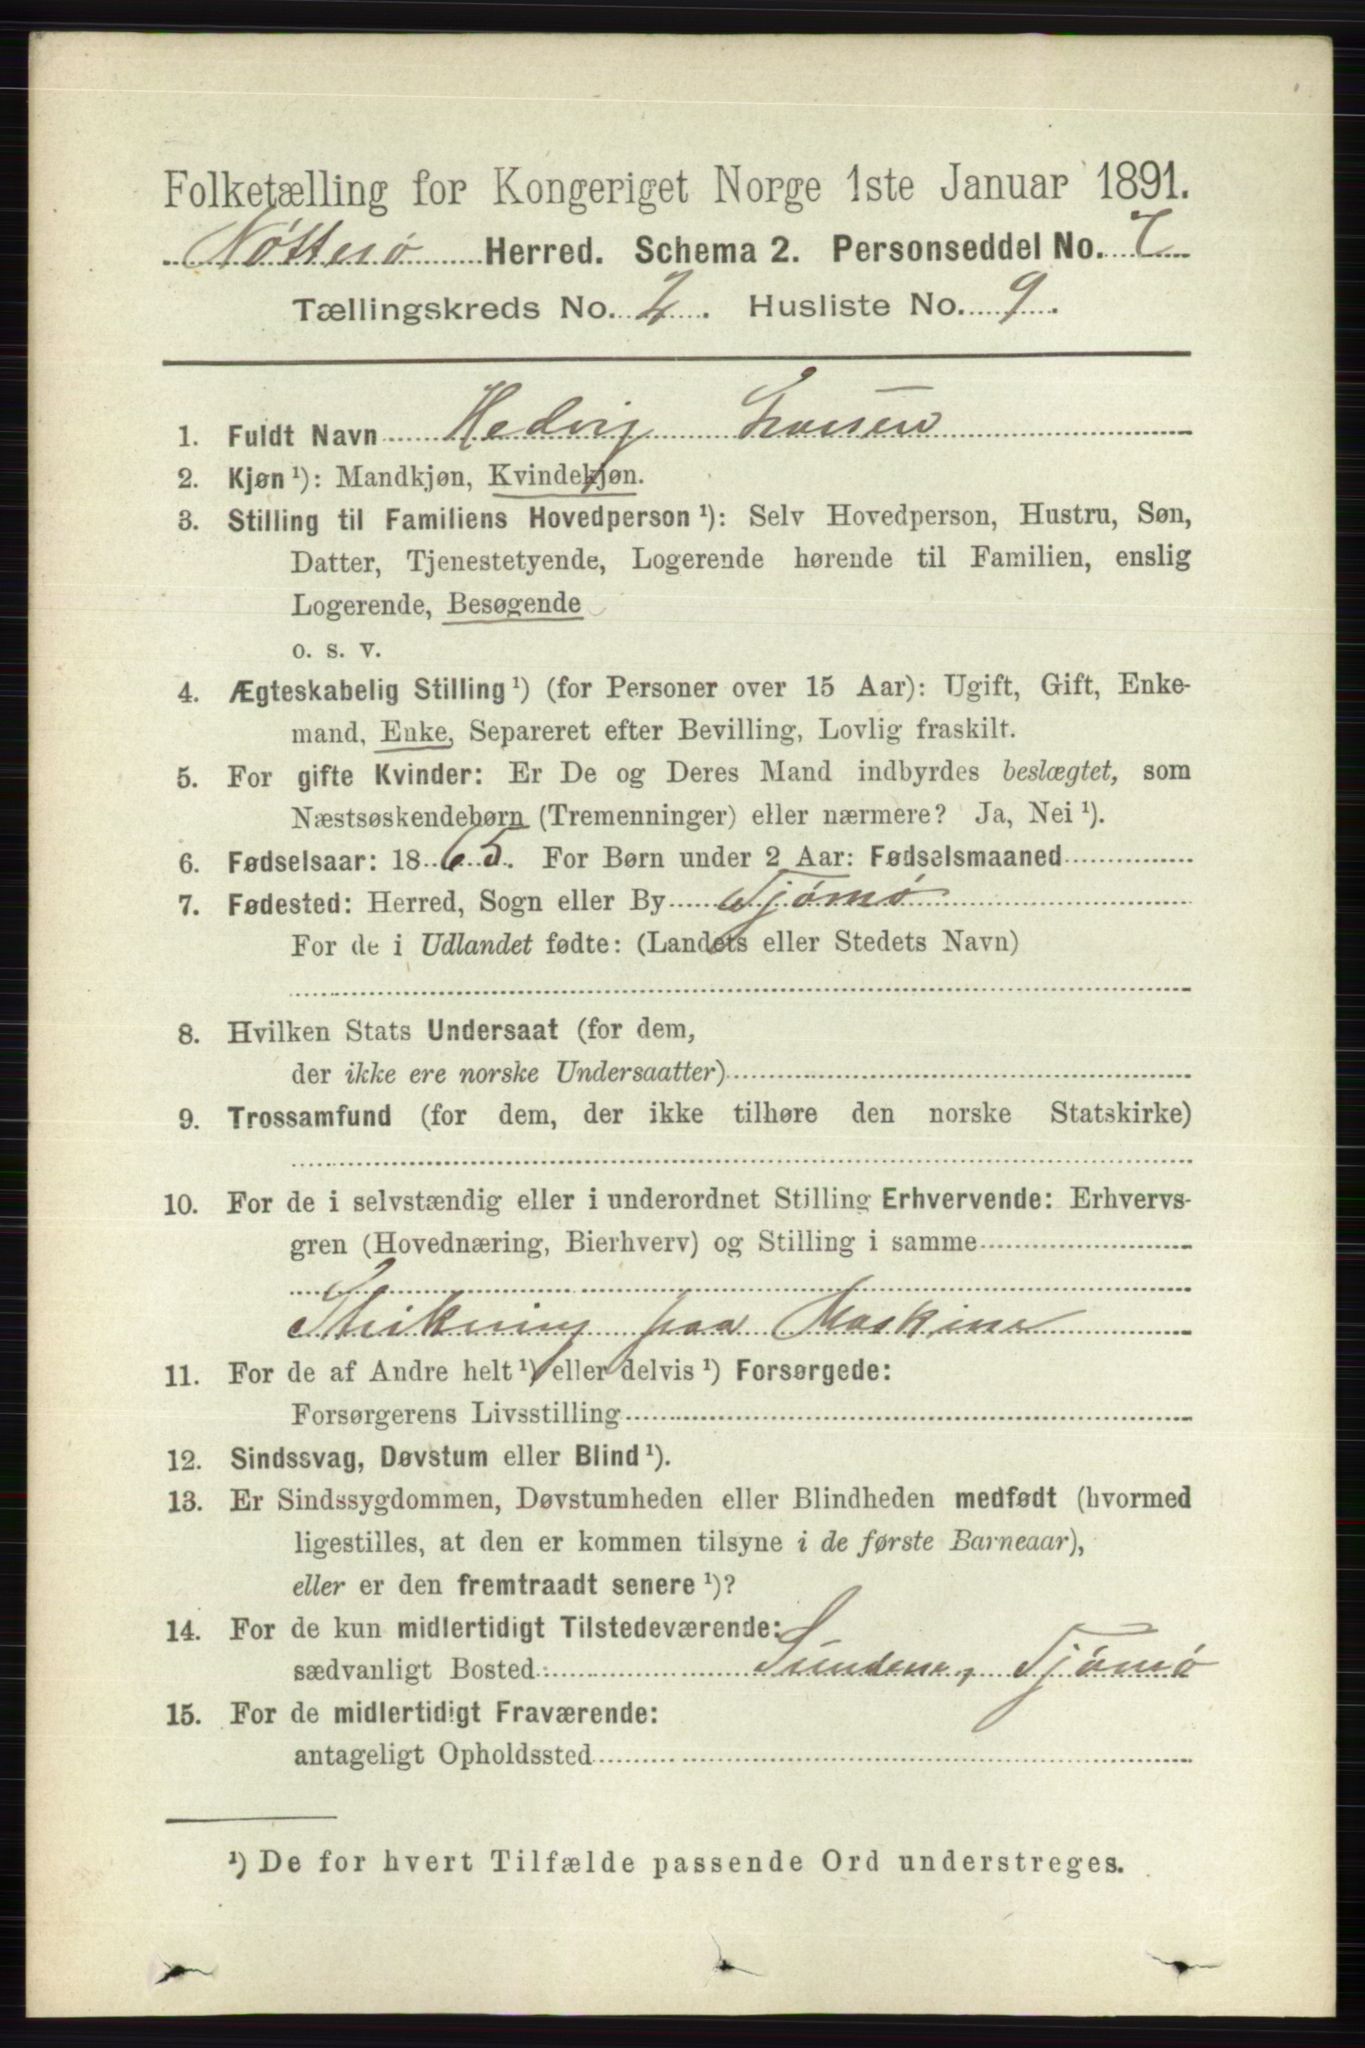 Folketælling for Kongeriget Norge 1ste Januar 1891.
Nötterö Herred. Schema 2. Personseddel No. 7
Tællingskreds No. 2. Husliste No. 9.
1. Fuldt Navn Hedvig Larsen
2. Kjøn ¹): Mandkjøn, Kvindekjøn.
3. Stilling til Familiens Hovedperson ¹): Selv Hovedperson, Hustru, Søn,
Datter, Tjenestetyende, Logerende hørende til Familien, enslig
Logerende, Besøgende
o. s. v.
4. Ægteskabelig Stilling ¹) (for Personer over 15 Aar): Ugift, Gift, Enke-
mand, Enke, Separeret efter Bevilling, Lovlig fraskilt.
5. For gifte Kvinder: Er De og Deres Mand indbyrdes beslægtet, som
Næstsøskendebørn (Tremenninger) eller nærmere? Ja, Nei ¹).
6. Fødselsaar: 1865. For Børn under 2 Aar: Fødselsmaaned
7. Fødested: Herred, Sogn eller By Tjömö
For de i Udlandet fødte: (Landets eller Stedets Navn)
8. Hvilken Stats Undersaat (for dem,
der ikke ere norske Undersaatter)
9. Trossamfund (for dem, der ikke tilhøre den norske Statskirke)
10. For de i selvstændig eller i underordnet Stilling Erhvervende: Erhvervs-
gren (Hovednæring, Bierhverv) og Stilling i samme
Strikning paa Maskine
11. For de af Andre helt ¹) eller delvis ¹) Forsørgede:
Forsørgerens Livsstilling
12. Sindssvag, Døvstum eller Blind ¹).
13. Er Sindssygdommen, Døvstumheden eller Blindheden medfødt (hvormed
ligestilles, at den er kommen tilsyne i de første Barneaar),
eller er den fremtraadt senere ¹)?
14. For de kun midlertidigt Tilstedeværende:
sædvanligt Bosted: Sundene, Tjömö
15. For de midlertidigt Fraværende:
antageligt Opholdssted
¹) De for hvert Tilfælde passende Ord understreges.